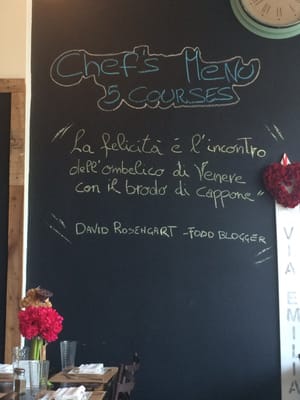 Chef's Menu
5 COURSES
"La felicità è l'incontro
dell'ombelico di Venere
con il brodo di cappone"
DAVID ROSENGART - FOOD BLOGGER
VIA EMILIA